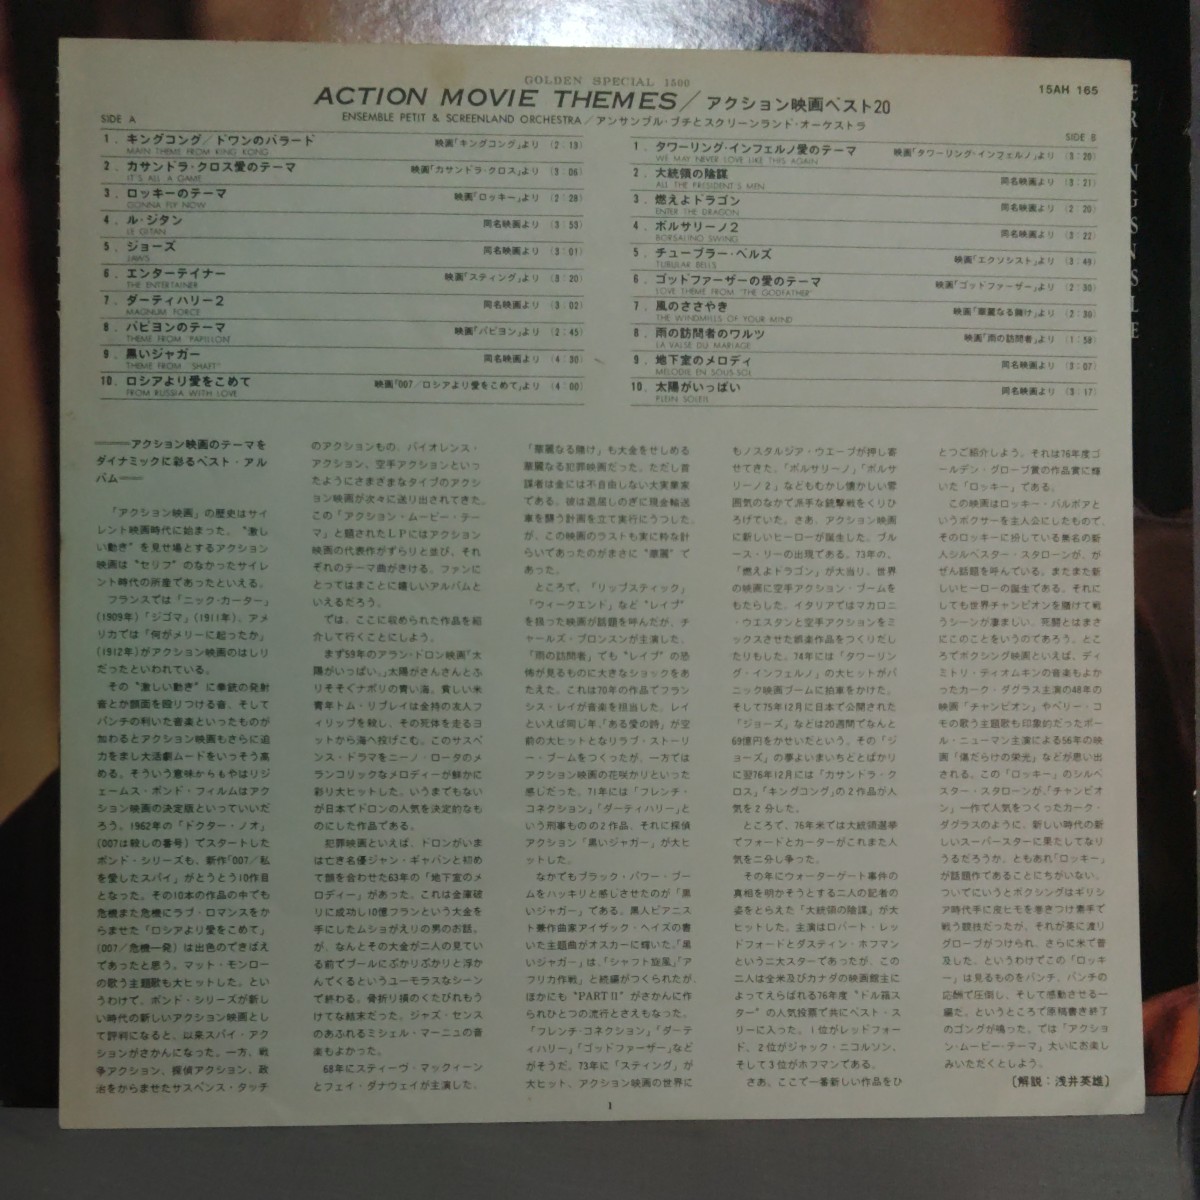 GOLDEN SPECIAL 1500
ACTION MOVIE THEMES/アクション映画ベスト20
15AH 165
ENSEMBLE PETIT & SCREENLAND ORCHESTRA/アンサンブル・プチとスクリーンランド・オーケストラ
SIDE A
1. キングコング/ドワンのバラード 映画「キングコング」より (2:13)
MAIN THEME FROM KING KONG
2. カサンドラ・クロス愛のテーマ 映画「カサンドラ・クロス」より (3:06)
IT'S ALL A GAME
3. ロッキーのテーマ 映画「ロッキー」より (2:28)
GONNA FLY NOW
4. ル・ジタン 同名映画より (3:53)
LE GITAN
5. ジョーズ 同名映画より (3:01)
JAWS
6. エンターテイナー 映画「スティング」より (3:20)
THE ENTERTAINER
7. ダーティハリー2 同名映画より (3:02)
MAGNUM FORCE
8. パピヨンのテーマ 映画「パピヨン」より (2:45)
THEME FROM "PAPILLON"
9. 黒いジャガー 同名映画より (4:30)
THEME FROM "SHAFT"
10. ロシアより愛をこめて 映画「007/ロシアより愛をこめて」より (4:00)
FROM RUSSIA WITH LOVE
SIDE B
1. タワーリング・インフェルノ愛のテーマ 映画「タワーリング・インフェルノ」より (3:20)
WE MAY NEVER LOVE LIKE THIS AGAIN
2. 大統領の陰謀 同名映画より (3:21)
ALL THE PRESIDENT'S MEN
3. 燃えよドラゴン 同名映画より (2:20)
ENTER THE DRAGON
4. ボルサリーノ2 同名映画より (3:22)
BORSALINO SWING
5. チューブラー・ベルズ 映画「エクソシスト」より (3:49)
TUBULAR BELLS
6. ゴッドファーザーの愛のテーマ 映画「ゴッドファーザー」より (2:30)
LOVE THEME FROM "THE GODFATHER"
7. 風のささやき 映画「華麗なる賭け」より (2:30)
THE WINDMILLS OF YOUR MIND
8. 雨の訪問者のワルツ 映画「雨の訪問者」より (1:58)
LA VALSE DU MARIAGE
9. 地下室のメロディ 同名映画より (3:07)
MELODIE EN SOUS-SOL
10. 太陽がいっぱい 同名映画より (3:17)
PLEIN SOLEIL
——アクション映画のテーマを
ダイナミックに彩るベスト・アル
バム——
「アクション映画」の歴史はサイ
レント映画時代に始まった。"激し
い動き"を見せ場とするアクション
映画は"セリフ"のなかったサイレ
ント時代の所産であったといえる。
フランスでは「ニック・カーター」
(1909年)「ジゴマ」(1911年)、アメ
リカでは「何がメリーに起ったか」
(1912年)がアクション映画のはしり
だったといわれている。
その"激しい動き"に拳銃の発射
音とか顔面を殴りつける音、そして
パンチの利いた音楽といったものが
加わるとアクション映画もさらに迫
力をまし大活劇ムードをいっそう高
める。そういう意味からもやはりジ
ェームス・ボンド・フィルムはアク
ション映画の決定版といっていいだ
ろう。1962年の「ドクター・ノオ」
(007は殺しの番号)でスタートした
ボンド・シリーズも、新作「007/私
を愛したスパイ」がとうとう10作目
となった。その10本の作品の中でも
危機また危機にラブ・ロマンスをか
らませた「ロシアより愛をこめて」
(007/危機一発)は出色のできばえ
であったと思う。マット・モンロー
の歌う主題歌も大ヒットした。とい
うわけで、ボンド・シリーズが新し
い時代の新しいアクション映画とし
て評判になると、以来スパイ・アク
ションがさかんになった。一方、戦
争アクション、探偵アクション、政
治をからませたサスペンス・タッチ
のアクションもの、バイオレンス・
アクション、空手アクションといっ
たようにさまざまなタイプのアクシ
ョン映画が次々に送り出されてきた。
この「アクション・ムービー・テー
マ」と題されたLPにはアクション
映画の代表作がずらりと並び、それ
ぞれのテーマ曲がきける。ファンに
とってはまことに嬉しいアルバムと
いえるだろう。
では、ここに収められた作品を紹
介して行くことにしよう。
まず59年のアラン・ドロン映画「太
陽がいっぱい」。太陽がさんさんとふ
りそそぐナポリの青い海。貧しい米
青年トム・リプレイは金持の友人フ
ィリップを殺し、その死体を走るヨ
ットから海へ投げこむ。このサスペ
ンス・ドラマをニーノ・ロータのメ
ランコリックなメロディーが鮮かに
彩り大ヒットした。いうまでもない
が日本でドロンの人気を決定的なも
のにした作品である。
犯罪映画といえば、ドロンがいま
は亡き名優ジャン・ギャバンと初め
て顔を合わせた63年の「地下室のメ
ロディー」があった。これは金庫破
りに成功し10億フランという大金を
手にしたムショがえりの男のお話。
が、なんとその大金が二人の見てい
る前でプールにぷかりぷかりと浮か
んでくるというユーモラスなシーン
で終わる。骨折り損のくたびれもう
けてな結末だった。ジャズ・センス
のあふれるミシェル・マーニュの音
楽もよかった。
68年にスティーヴ・マックィーン
とフェイ・ダナウェイが主演した、
「華麗なる賭け」も大金をせしめる
華麗なる犯罪映画だった。ただし首
謀者は金には不自由しない大実業家
である。彼は退屈しのぎに現金輸送
車を襲う計画を立て実行にうつした。
が、この映画のラストも実に粋な計
らいであったのがまさに"華麗"で
あった。
ところで、「リップスティック」
「ウィークエンド」など"レイプ"
を扱った映画が話題を呼んだが、チ
ャールズ・ブロンスンが主演した。
「雨の訪問者」でも"レイプ"の恐
怖が見るものに大きなショックをあ
たえた。これは70年の作品でフラン
シス・レイが音楽を担当した。レイ
といえば同じ年、「ある愛の詩」が空
前の大ヒットとなりラブ・ストーリ
ー・ブームをつくったが、一方では
アクション映画の花咲かりといった
感じだった。71年には「フレンチ・
コネクション」「ダーティハリー」と
いう刑事ものの2作品、それに探偵
アクション「黒いジャガー」が大ヒ
ットした。
なかでもブラック・パワー・ブー
ムをハッキリと感じさせたのが「黒
いジャガー」である。黒人ピアニス
ト兼作曲家アイザック・ヘイズの書
いた主題曲がオスカーに輝いた。「黒
いジャガー」は、「シャフト旋風」「ア
フリカ作戦」と続編がつくられたが、
ほかにも"PARTⅡ"がさかんに作
られひとつの流行とさえもなった。
「フレンチ・コネクション」「ダーテ
ィハリー」「ゴッドファーザー」など
がそうだ。73年に「スティング」が
大ヒット、アクション映画の世界に
もノスタルジア・ウエーブが押し寄
せてきた。「ボルサリーノ」「ボルサ
リーノ2」などもむかし懐かしい雰
囲気のなかで派手な銃撃戦をくりひ
ろげていた。さあ、アクション映画
に新しいヒーローが誕生した。ブル
ース・リーの出現である。73年の、
「燃えよドラゴン」が大当り。世界
の映画に空手アクション・ブームを
もたらした。イタリアではマカロニ
・ウエスタンと空手アクションをミ
ックスさせた娯楽作品をつくりだし
たりもした。74年には「タワーリン
グ・インフェルノ」の大ヒットがパ
ニック映画ブームに拍車をかけた。
そして75年12月に日本で公開された
「ジョーズ」などは20週間でなんと
69億円をかせいだという。その「ジ
ョーズ」の夢よいまいちどとばかり
に翌76年12月には「カサンドラ・ク
ロス」「キングコング」の2作品が人
気を2分した。
ところで、76年米では大統領選挙
でフォードとカーターがこれまた人
気を二分し争った。
その年にウォーターゲート事件の
真相を明かそうとする二人の記者の
姿をとらえた「大統領の陰謀」が大
ヒットした。主演はロバート・レッ
ドフォードとダスティン・ホフマン
という二大スターであったが、この
二人は全米及びカナダの映画館主に
よってえらばれる76年度"ドル箱ス
ター"の人気投票で共にベスト・ス
リーに入った。1位がレッドフォー
ド、2位がジャック・ニコルソン、
そして3位がホフマンである。
さあ、ここで一番新しい作品をひ
とつご紹介しよう。それは76年度ゴ
ールデン・グローブ賞の作品賞に輝
いた「ロッキー」である。
この映画はロッキー・バルボアと
いうボクサーを主人公にしたもので、
そのロッキーに扮している無名の新
人シルベスター・スタローンが、が
ぜん話題を呼んでいる。またまた新
しいヒーローの誕生である。それに
しても世界チャンピオンを賭けて戦
うシーンが凄まじい。死闘とはまさ
にこのことをいうのであろう。とこ
ろでボクシング映画といえば、ディ
ミトリ・ティオムキンの音楽もよか
ったカーク・ダグラス主演の48年の
映画「チャンピオン」やペリー・コ
モの歌う主題歌も印象的だったポー
ル・ニューマン主演による56年の映
画「傷だらけの栄光」などが思い出
される。この「ロッキー」のシルベ
スター・スタローンが、「チャンピオ
ン」一作で人気をつくったカーク・
ダグラスのように、新しい時代の新
しいスーパースターに果たしてなり
うるだろうか。ともあれ「ロッキー」
が話題作であることにちがいない。
ついでにいうとボクシングはギリシ
ア時代手に皮ヒモを巻きつけ素手で
戦う競技だったが、それが英に渡り
グローブがつけられ、さらに米で普
及した。というわけでこの「ロッキ
ー」は見るものをパンチ、パンチの
応酬で圧倒し、そして感動させる一
編だ。というところで原稿書き終了
のゴングが鳴った。では「アクショ
ン・ムービー・テーマ」大いにお楽し
みいただくとしよう。
〔解説:浅井英雄〕
1